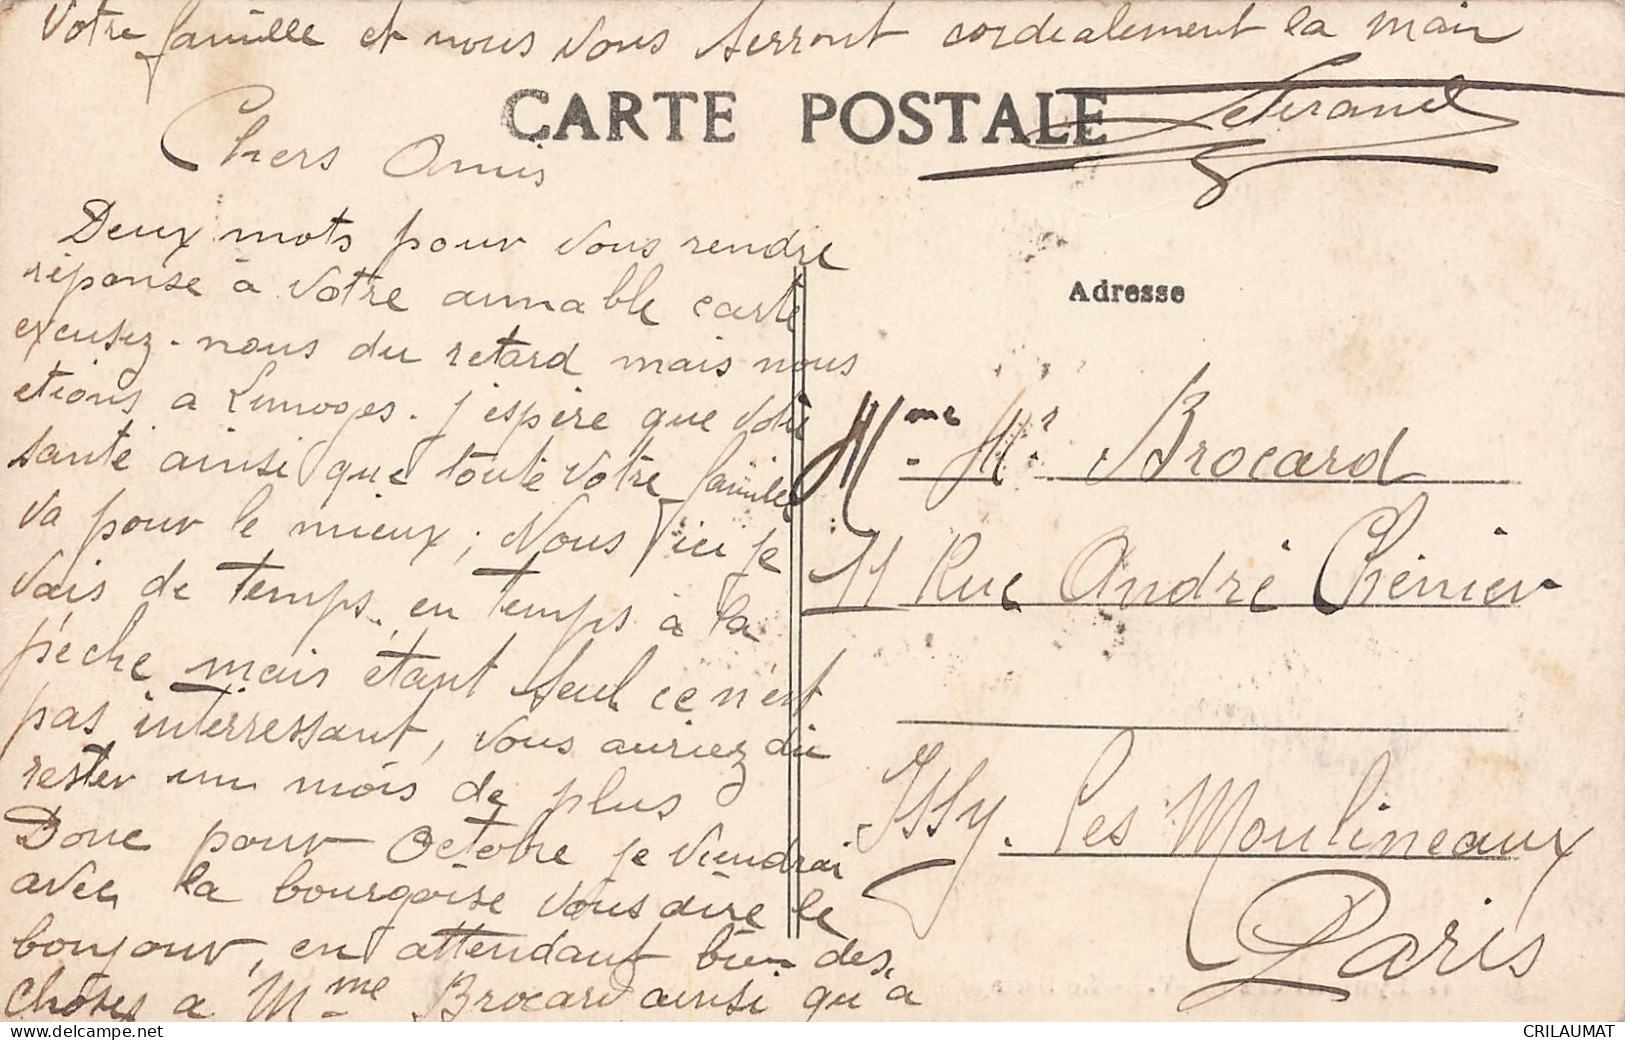 Votre famille et nous vous serront cordealement la main
CARTE POSTALE
Chers Amis
Deux mots pour vous rendre
réponse à votre aimable carte
excusez-nous du retard mais nous
etions a Limoges. j'espère que votre
santé ainsi que toute votre famille
va pour le mieux ; Nous ici je
vais de temps en temps à la
pêche mais étant seul ce n'est
pas interressant, vous auriez dû
rester un mois de plus
Donc pour Octobre je viendrai
avec la bourgoise vous dire le
bonjour, en attendant bien des
choses a Mme Brocard ainsi qu'a
Adresse
Mme. Mr Brocard
11 Rue André Chénier
Issy-les Moulineaux
Paris
CRILAUMAT